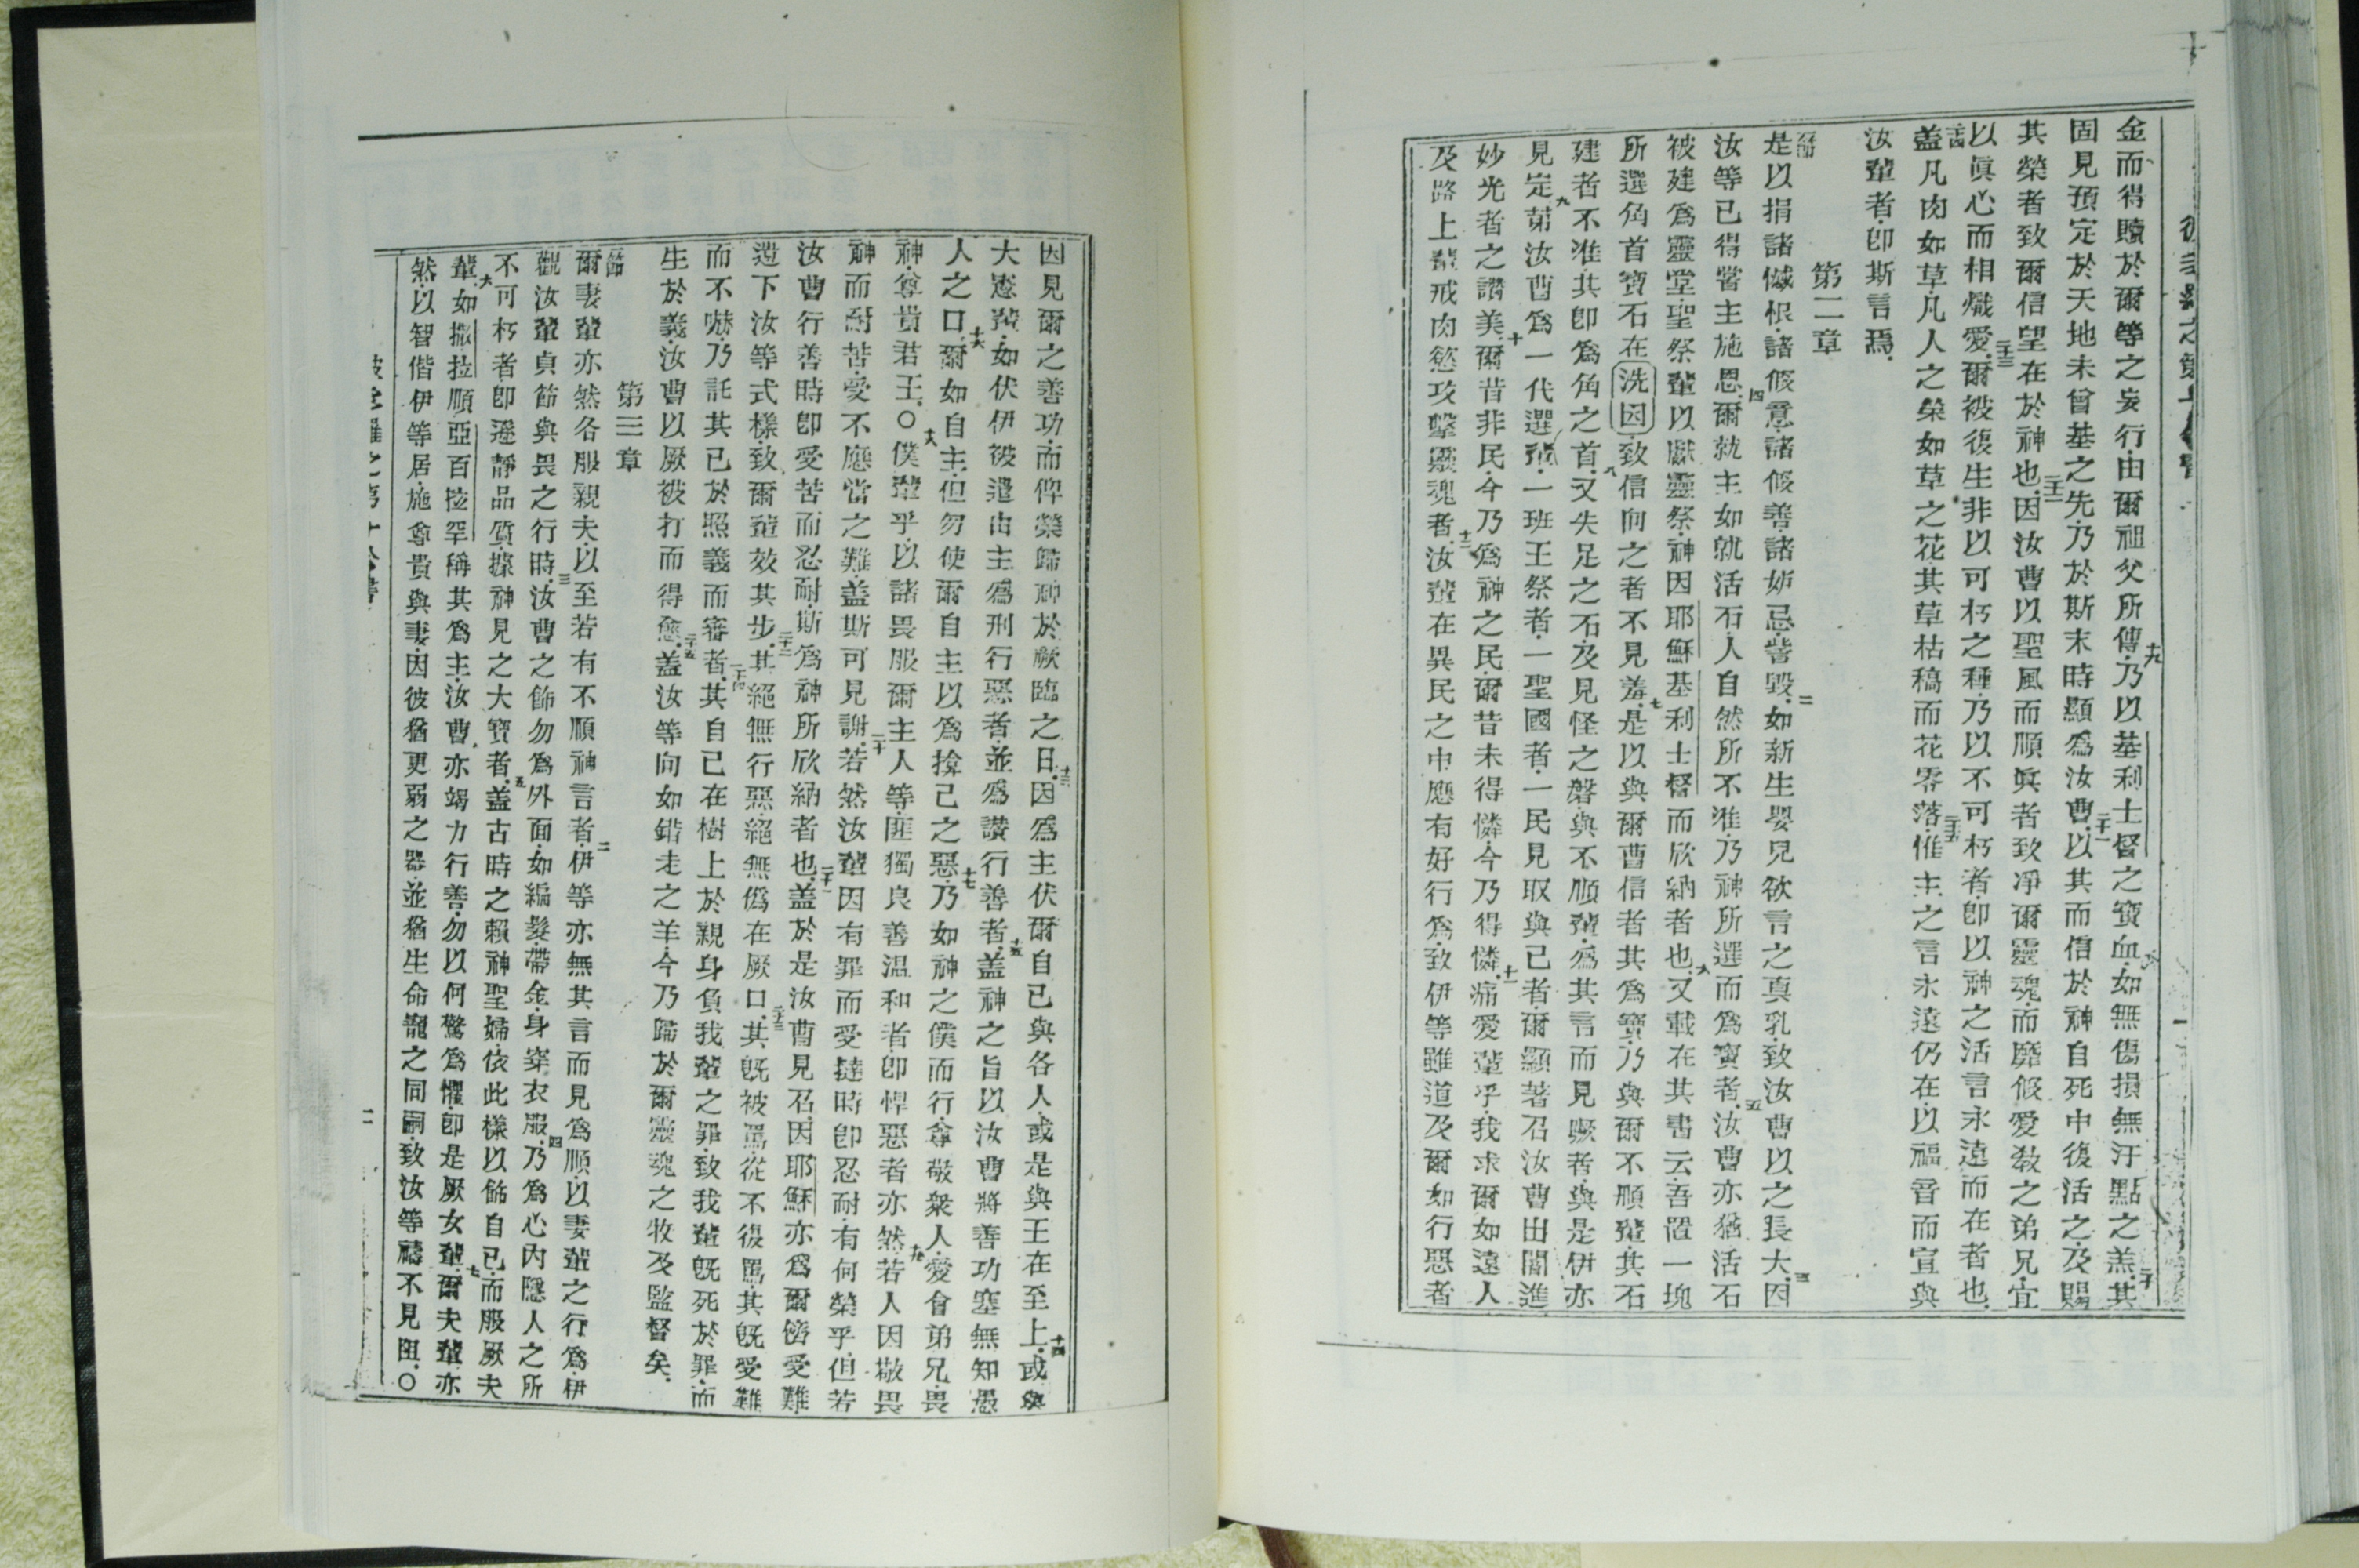 金而得贖於爾等之妄行由爾祖父所傳乃以基利士督之寶血如無傷損無汙點之羔其
固見預定於天地未曾基之先乃於斯末時顯爲汝曹以其而信於神自死中復活之及賜
其榮者致爾信望在於神也因汝曹以聖風而順眞者致凈爾靈魂而靡假愛教之弟兄宜
以眞心而相熾愛爾被復生非以可朽之種乃以不可朽者卽以神之活言永遠而在者也
蓋凡肉如草凡人之榮如草之花其草枯稿而花零落惟主之言永遠仍在以福音而宣與
汝輩者卽斯言焉
第二章
是以捐諸憾根諸假意諸假善諸妒忌訾毀如新生嬰兒欲言之真乳致汝曹以之長大因
汝等已得嘗主施恩爾就主如就活石人自然所不准乃神所選而爲寶者汝曹亦猶活石
被建爲靈堂聖祭輩以獻靈祭神因耶穌基利士督而欣納者也又載在其書云吾置一塊
所選角首寶石在洗因致信向之者不見羞是以與爾曹信者其爲寶乃與爾不順輩其石
建者不准其卽爲角之首又失足之石及見怪之磐與不順輩爲其言而見蹶者與是伊亦
見定第汝曹爲一代選輩一班王祭者一聖國者一民見取與己者爾顯著召汝曹出闇進
妙光者之讚美爾昔非民今乃爲神之民爾昔未得憐今乃得憐痛愛輩乎我求爾如遠人
及路上輩戒肉慾攻擊靈魂者汝輩在異民之中應有好行爲致伊等雖道及爾如行惡者
因見爾之善功而俾榮歸神於厥臨之日因爲主伏爾自己與各人或是與王在至上或與
大憲輩如伏伊被遣由主爲刑行惡者並爲讚行善者蓋神之旨以汝曹將善功塞無知愚
人之口爾如自主但勿使爾自主以爲揜己之惡乃如神之僕而行尊敬衆人愛會弟兄畏
神尊貴君王○僕輩乎以諸畏服爾主人等匪獨良善溫和者卽悍惡者亦然若人因敬畏
神而耐苦受不應當之難蓋斯可見謝若然汝輩因有罪而受撻時卽忍耐有何榮乎但若
汝曹行善時卽受苦而忍耐斯爲神所欣納者也蓋於是汝曹見召因耶穌亦爲爾儕受難
遺下汝等式樣致爾輩效其步其絕無行惡絕無僞在厥口其旣被罵從不復罵其旣受難
而不嚇乃託其已於照義而審者其自己在樹上於親身負我輩之罪致我輩旣死於罪而
生於義汝曹以厥被打而得愈蓋汝等向如錯走之羊今乃歸於爾靈魂之牧及監督矣
第三章
爾妻輩亦然各服親夫以至若有不順神言者伊等亦無其言而見爲順以妻輩之行爲伊
觀汝輩貞節與畏之行時汝曹之飾勿爲外面如編髮帶金身穿衣服乃爲心內隱人之所
不可朽者卽遜靜品質據神見之大寶者蓋古時之賴神聖婦依此樣以飾自己而服厥夫
輩如撒拉順亞百拉罕稱其爲主汝曹亦竭力行善勿以何驚爲懼卽是厥女輩爾夫輩亦
然以智偕伊等居施尊貴與妻因彼猶更弱之器並猶生命寵之同嗣致汝等禱不見阻○